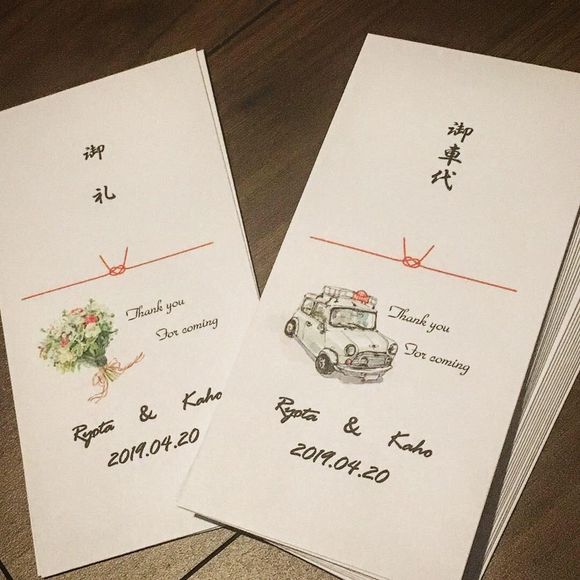 御礼
Thank you
For coming
Ryota & Kaho
2019.04.20
御車代
Thank you
For coming
Ryota & Kaho
2019.04.20